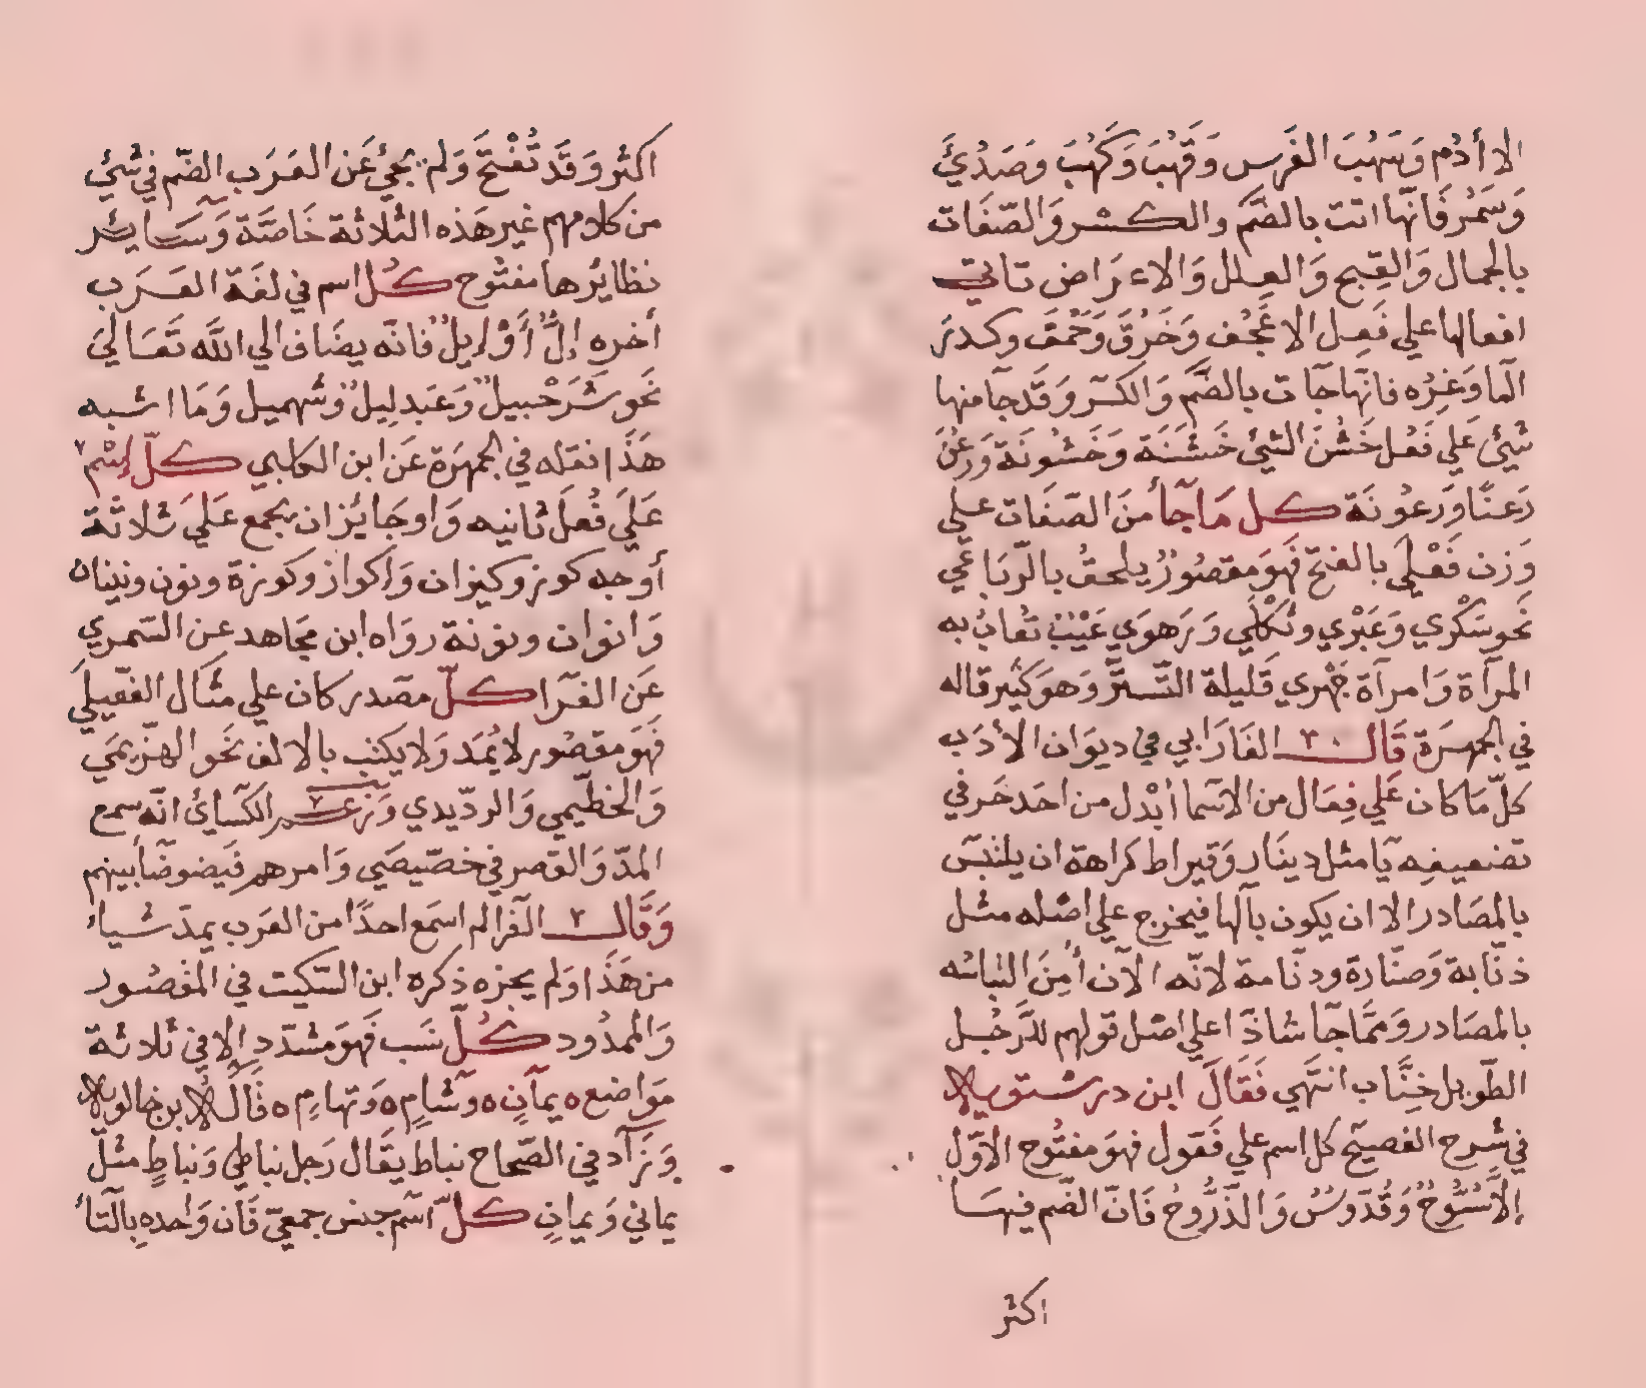 الا أدُم وَسَهُبَ الفَرس وَقَهُبَ وَكَهُبَ وَصَدُئَ
وَسَمُر فَانّها اتت بالضّم والكسر وَالصّفَات
بالجمال وَالقِبح وَالعِلل وَالاعرَاض تاتي
افعالها علي فَعِل الا عَجُف وَخَرُقَ وَحَمُقَ وكدرَ
المآ وَغيره فانّها جآت بالضّم وَالكسر وَقَد جآ منها
شيئ عَلي فَعُل خَشُنَ الشيئ خَشنَة وَخشُونَة وَرعُنَ
رَعنًا وَرعُونَة كل مَا جآ منَ الصّفَات علي
وَزن فَعْلي بالفتح فَهوَ مَقصُورٌ يلحقُ بالرّبَاعي
نحو سَكْري وَعَبْري وثكْلي وَرَهوَي عَيْبٌ تُعابُ به
المرآة وَامرآة جَهْري قَليلة التّستّر وَهوَ كثير قاله
في الجمهرَة قَال الفَارَابي في ديوَان الأدَب
كلّ مَا كان عَلي فِعّال من الاسما أبْدل من احَد حَرفي
تضعيفه يَا مثل دينَار وَقيراط كراهة ان يلتبس
بالمصَادر الا ان يكون بآلها فيخرج علي اصْله مثل
ذنّابة وَصنّارة ودنّامة لانّه الآن أُمِنَ التباسُه
بالمصَادر وَممّا جآ شاذّا علي اصْل قولهم للرَّجُل
الطّويل خِنَّاب انتَهي فَقَالَ ابن درستويه
في شرح الفصيح كل اسم علي فَعّول فهوَ مفتُوح الاوّل
إلاّ سُبُّوحٌ وَقُدّوسٌ وَالذّرُّوحُ فَانّ الضّم فيهَا
اكثر
اكثر وَقَد تُفْتحَ وَلم يجئ عَن العَرَب الضّم في شيئ
من كلامهم غير هَذه الثلاثة خَاصّة وَسَايرُ
نظايرُها مفتُوح كُل اسم في لغَة العَرَب
أخره إلٌّ أوْ إيلٌ فانّه يضَاف الي اللَّه تَعَاليَ
نحو شرَحْبيل وَعَبد لِيل وشهميل وَمَا اشبه
هَذَا نقله في الجمهرَة عَن ابن الكلبي كلّ إسْم
عَلَيَ فُعل ثانيه وَاو جَايُز ان يجمع عَليَ ثلاثَة
أوجه كوز وكيزان وَأكواز وكوزة ونون ونينان
وَانوان ونونة روَاه ابن مجَاهد عن السّمري
عَن الفرّا كلّ مصدر كان علي مثَال الفعّيلَي
فَهوَ مقصُور لا يُمَد وَلا يكتب بالالف نحو الهزّيمَي
وَالخطّيبي وَالردّيدي وَزعم الكسَايُ انّه سمع
المدّ وَالقصر في خصّيصَي وَامرهم فَيضوضَا بينهم
وَقَال الفرا لم اسمَع احدًا من العَرب يمدّ شياء
من هَذَا وَلم يجزه ذكره ابن السّكيت في المقصُور
وَالممدُود كُلّ نسَب فَهوَ مشدّد إلا في ثلاثة
موَاضع ه يمَانٍ ه وشامٍ ه وَتهامٍ ه قَال ابن خالويه
وَزَآد في الصّحاح نباط يقَال رَجل نباطي وَنباطٍ مثلُ
يماني وَيمانٍ كلّ اسم جنس جمعيّ فَان وَاحده بالتآ